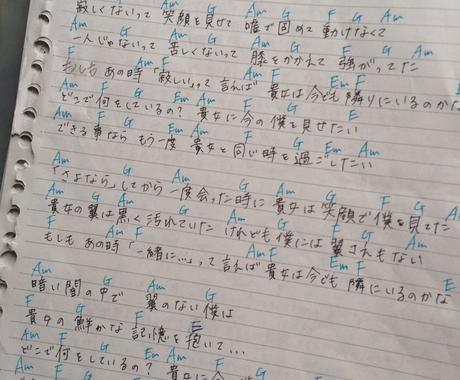 Am G F G Am
寂しくないって 笑顔を見せて 嘘で固めて 動けなくて
Am G Am G F G Am
一人じゃないって 苦しくないって 膝をかかえて 強がってた
F G Am F Em F
もしも あの時「寂しい」って 言えば 貴女は今でも 隣りにいるのかな
Am F G Em Am F G E
どこで何をしているの? 貴女に今の僕を見せたい
Am F G Em Am F G Am
できる事なら もう一度 貴女と同じ時を過ごしたい
Am G Am G F G Am
「さよなら」してから 一度会った時に 貴女は 笑顔で僕を見てた
Am G Am G F G Am
貴女の翼は黒く汚れていた けれども 僕には 翼さえもない
F G Am F Em F E
もしも あの時「一緒に…」って 言えば 貴女は今でも 隣にいるのかな
Am G Am G
暗い闇の中で 翼のない僕は
F G E
貴女の鮮かな 記憶を抱いて…
Am F G Em Am F G
どこで何をしているの? 貴女に
Am F G Em Am